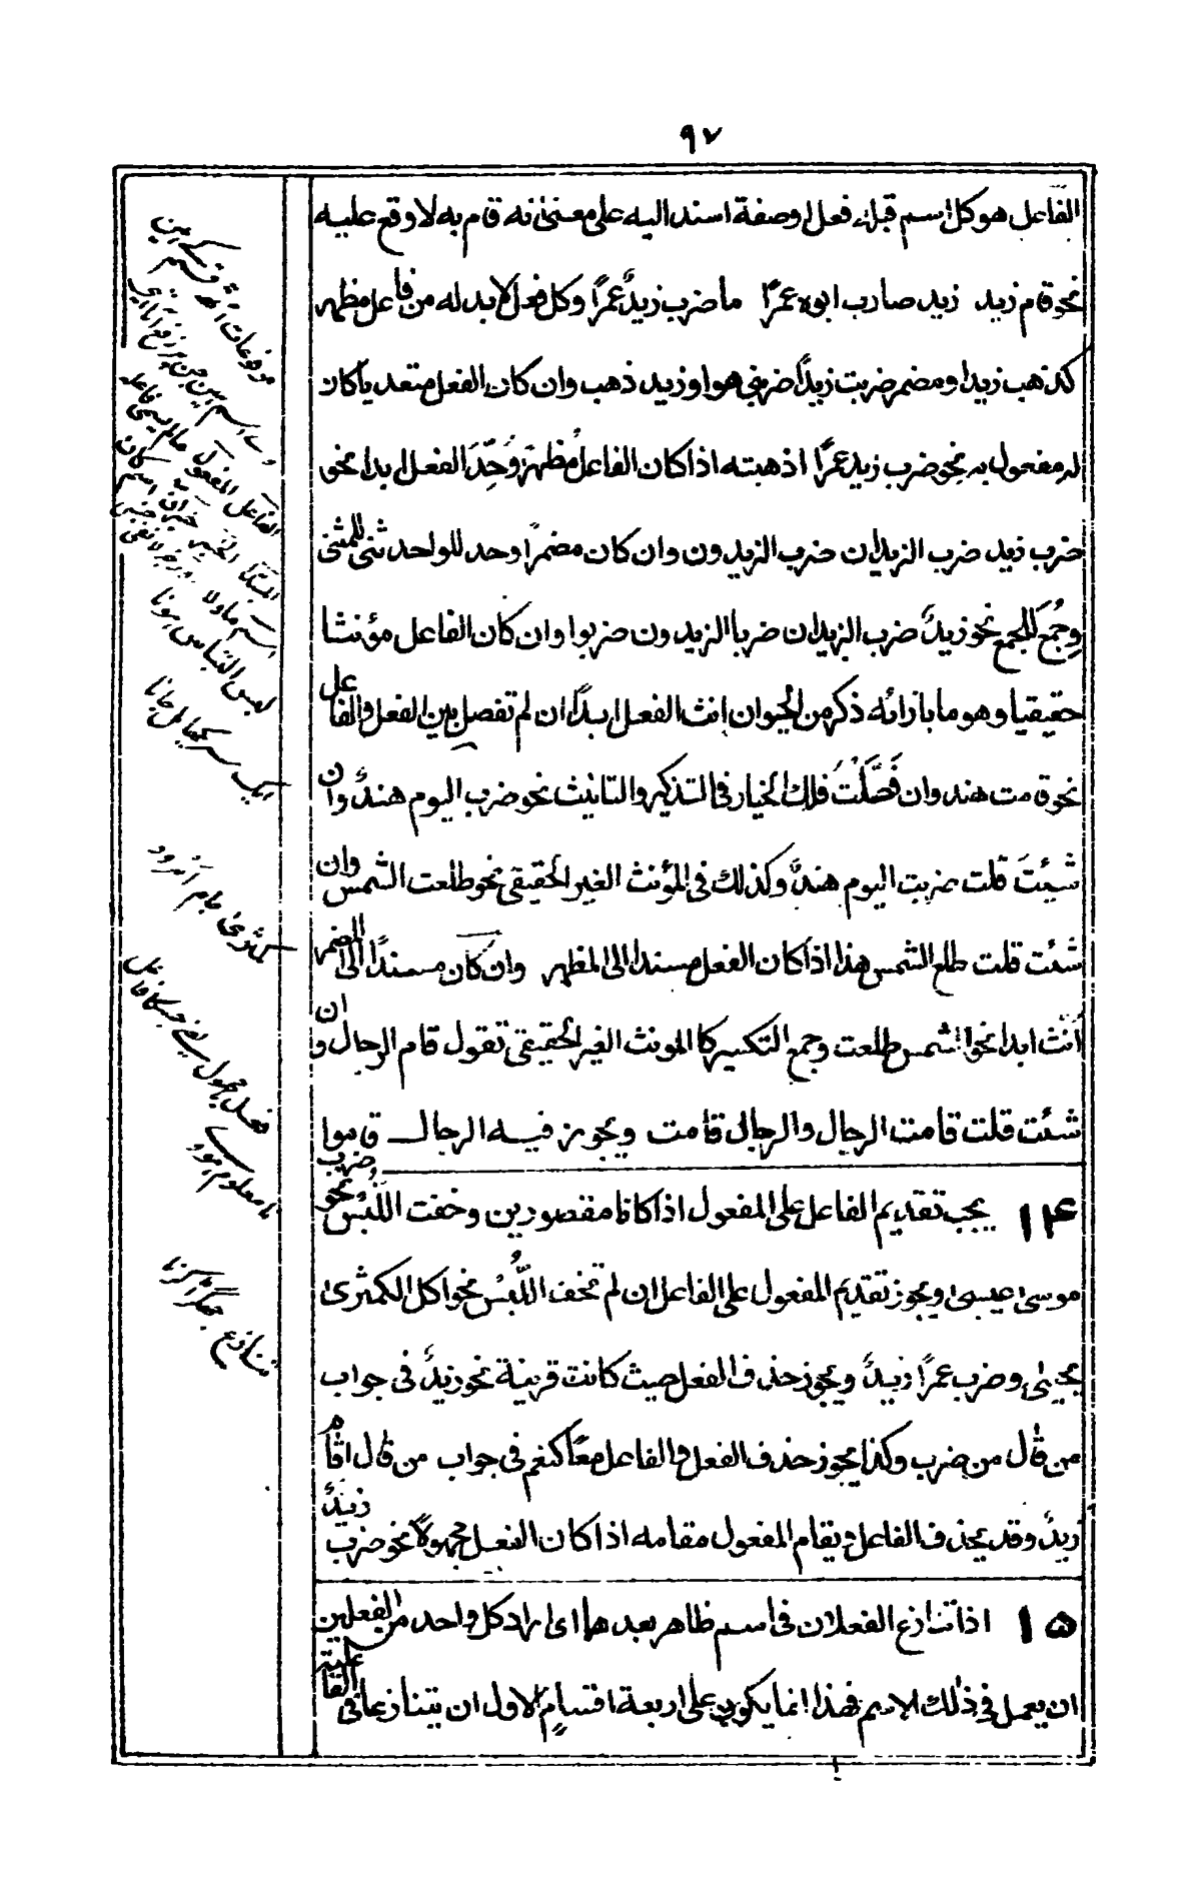 ٩٧
الفاعل هو كل اسم قبله فعل او صفة اسند اليه على معنى انه قام به لا وقع عليه
نحو قام زيد زيد ضارب ابوه عمرًا ما ضرب زيدٌ عمرًا وكل فعل لا بد له من فاعل مظهر
كذهب زيد او مضمر ضربت زيدًا ضربني هو او زيد ذهب وان كان الفعل متعديا كان
له مفعول به نحو ضرب زيد عمرًا اذهبته اذا كان الفاعلُ مُظهرًا وُحِّدَ الفعل ابدا نحو
ضرب زيد ضرب الزيدان ضرب الزيدون وان كان مضمرًا وحد للواحد ثنى للمثنى
وجُمِعَ للجمع نحو زيدٌ ضرب الزيدان ضربا الزيدون ضربوا وان كان الفاعل مؤنثا
حقيقيا وهو ما بازائه ذكر من الحيوان انث الفعل ابدًا ان لم تفصل بين الفعل والفاعل
نحو قامت هند وان فَصَّلْتَ فلك الخيار فى التذكير والتانيث نحو ضرب اليوم هندٌ وان
شئتَ قلت ضربت اليوم هندٌ وكذلك فى المؤنث الغير الحقيقى نحو طلعت الشمس وان
شئت قلت طلع الشمس هذا اذا كان الفعل مسندا الى المظهر وان كان مسندًا الى المضمر
أنّث ابدا نحو الشمس طلعت وجمع التكسير كالمونث الغير الحقيقى تقول قام الرجال وان
شئت قلت قامت الرجال والرجال قامت ويجوز فيه الرجال قاموا
١٤ يجب تقديم الفاعل على المفعول اذا كانا مقصورين وخفت اللَّبْسَ نحو ضرب
موسى عيسى ويجوز تقديم المفعول على الفاعل ان لم تخف اللَّبْسَ نحو اكل الكمثرى
يحيىٰ وضرب عمرًا زيدٌ ويجوز حذف الفعل حيث كانت قرينة نحو زيدٌ فى جواب
من قال من ضرب وكذا يجوز حذف الفعل والفاعل معًا كنعم فى جواب من قال اقام
زيدٌ وقد يحذف الفاعل ويقام المفعول مقامه اذا كان الفعل مجهولًا نحو ضرب زيدٌ
١٥ اذا تنازع الفعلان فى اسم ظاهر بعدهما اى اراد كل واحد من الفعلين
ان يعمل فى ذلك الاسم فهذا انما يكون على اربعة اقسام الاول ان يتنازعا فى الفاعلية
الفاعل المفعول مالم يسمى فاعله
لبس التباس ہونا
كمثرىٰ امرود
فعل مجهول يعنے جسكا فاعل
نا معلوم ہو
تنازع جھگڑا كرنا